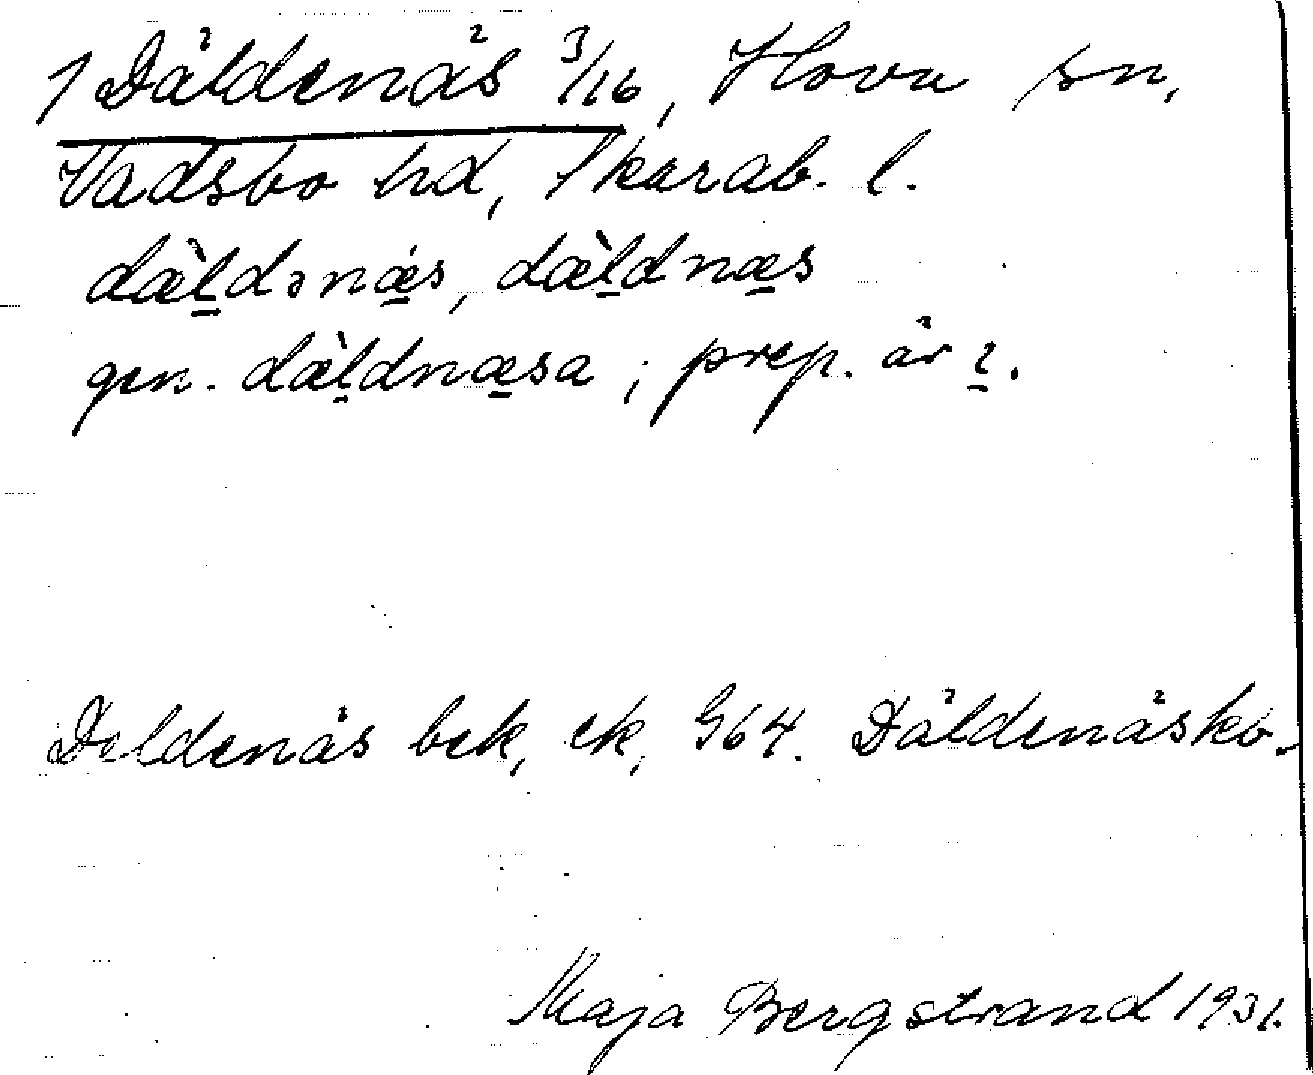 1 Däldenäs 3/16, Hova sn,
Vadsbo hd, Skarab. l.
dæ̀ḻdənæ̱s, dæ̀ḻdnæ̱s
gen. dæ̀ḻdnæ̱sa ; prep. är ɩ̱.
Deldenäs bek, ek, G64. Däldenäsko-
Maja Bergstrand 1931.